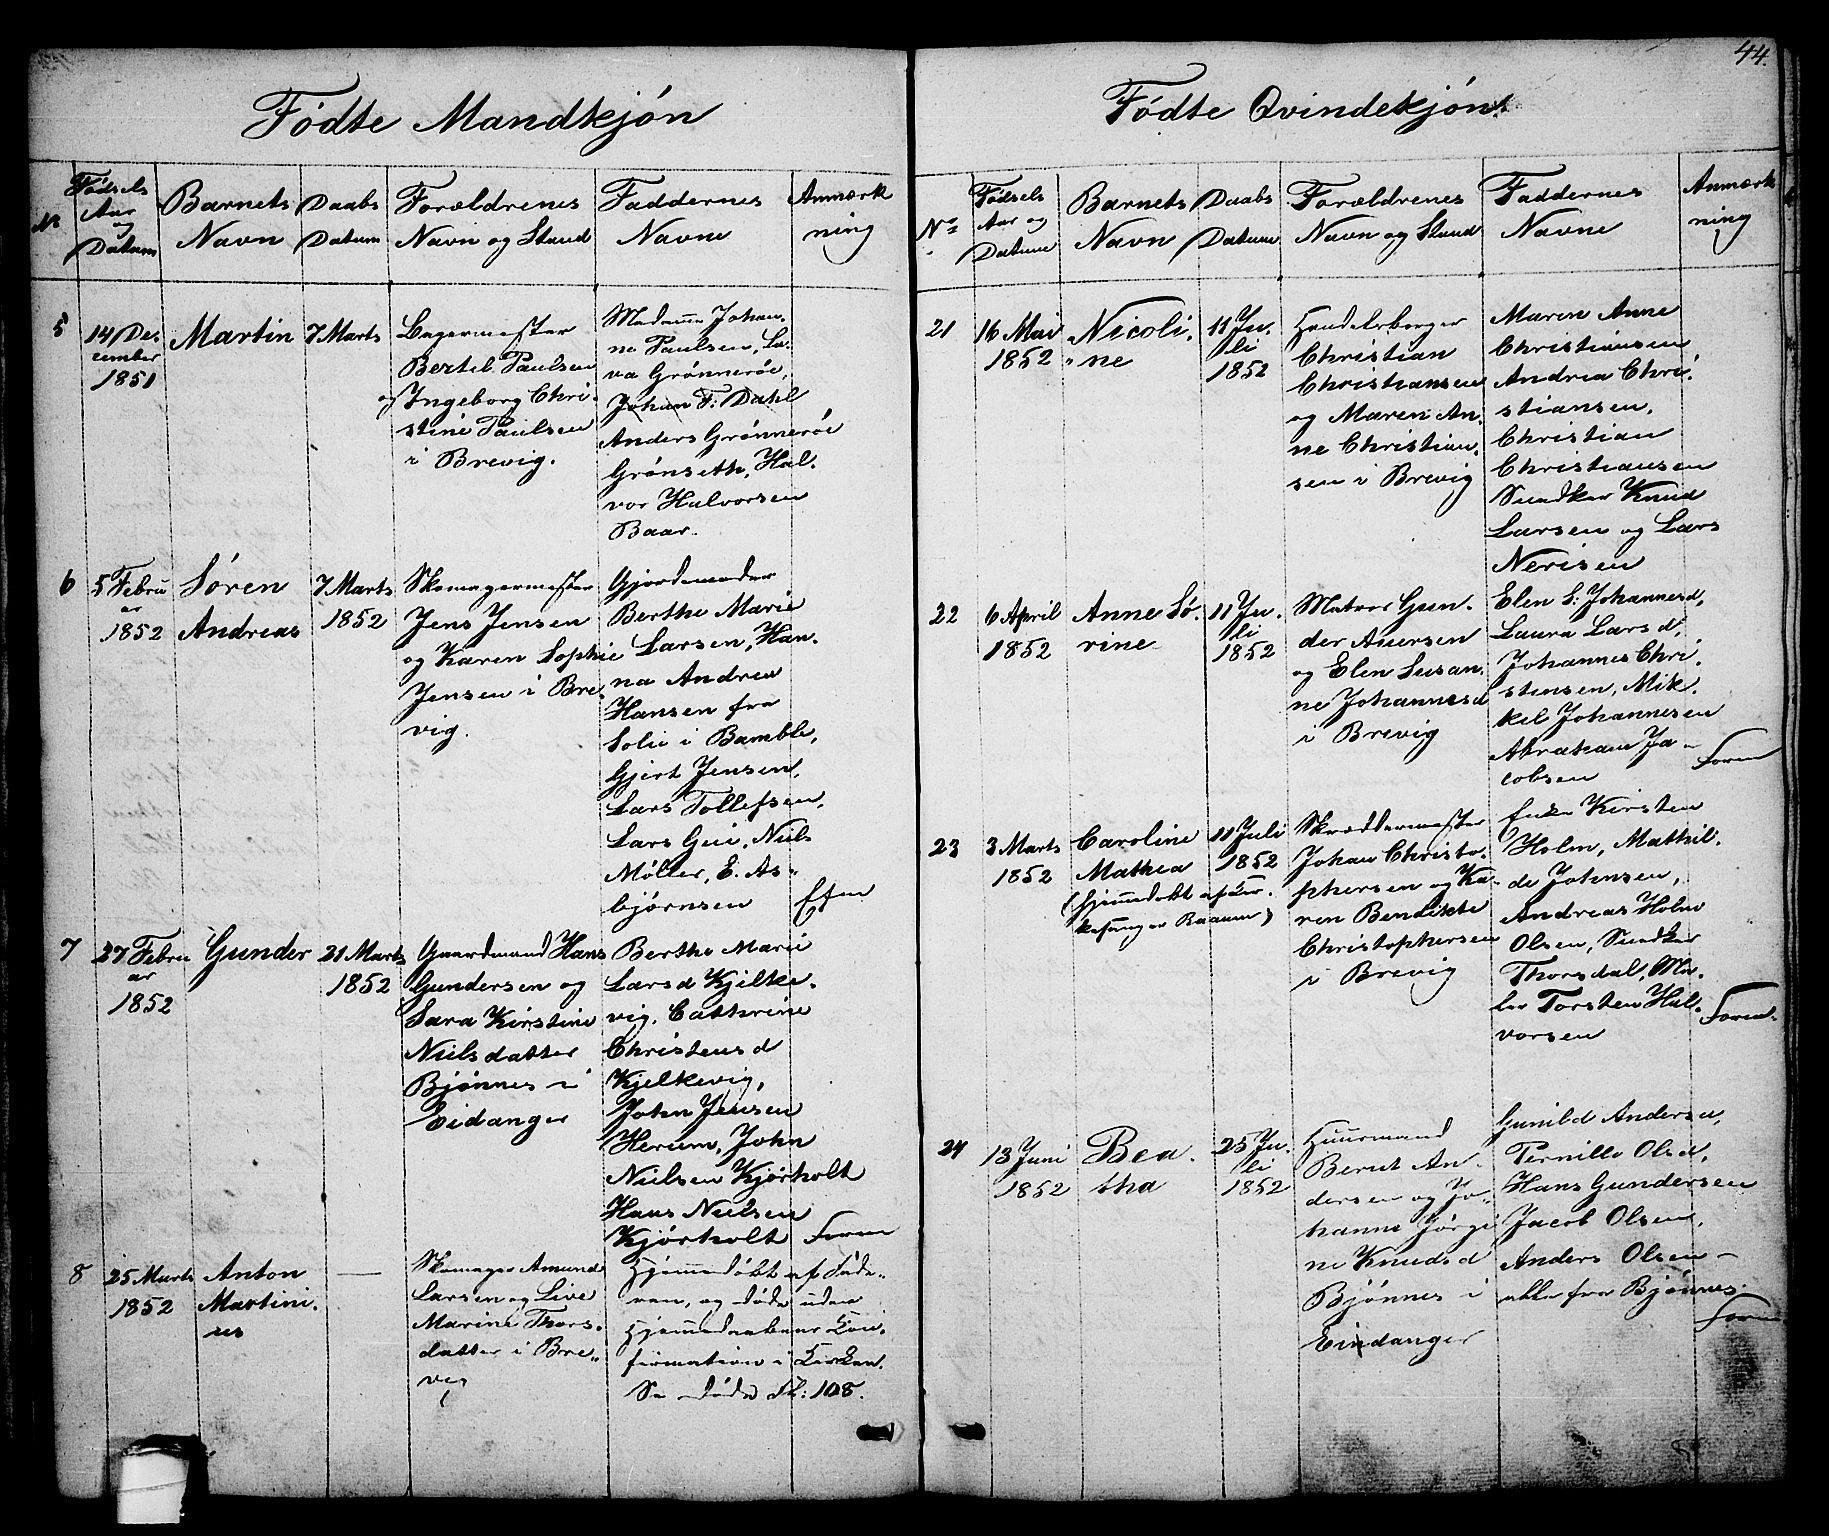 44.
Fødte Mandkjøn
No
Fødsels
Aar
og
Datum
Barnets
Navn
Daabs
Datum
Forældrenes
Navn og Stand
Faddernes
Navne
Anmærk
ning
5
14 De-
cember
1851
Martin
7 Marts
Bagermester
Bertel Paulsen
og Ingeborg Chri-
stine Paulsen
i Brevig.
Madame Johan-
ne Paulsen, La-
va Grønnerøe,
Johan F: Dahl
Anders Grønnerøe
Grønseth, Hal-
vor Halvorsen
Baar.
6
5 Febru
ar
1852
Søren
Andreas
7 Marts
1852
Skomagermester
Jens Jensen
og Karen Sophie
Jensen i Bre-
vig.
Gjordemoder
Berthe Marie
Larsen, Han-
na Andrea
Hansen fra
Solie i Bamble,
Gjert Jensen,
Lars Tollefsen,
Lars Gui, Niels
Møller, E. As-
bjørnsen
7
27 Febru
ar
1852
Gunder
21 Marts
1852
Gaardmand Hans
Gundersen og
Sara Kirstine
Nielsdatter
Bjønnes i
Eidanger
Berthe Marie
Larsd Kjelke-
vig, Cathrine
Christensd
Kjelkevig,
John Jensen
Herum, John
Nielsen Kjørholt
Hans Nielsen
Kjørholt
Foren
8
25 Marts
1852
Anton
Martini-
us
—
Skomager Amund
Larsen og Live
Marine Thors-
datter i Bre-
vig
Hjemmedøbt af Fade-
ren, og døde uden
Hjemmedaabens Con-
firmation i Kirken.
Se døde Fl: 108.
Fødte Qvindekjøn.
No
Fødsels
Aar og
Datum
Barnets
Navn
Daabs
Datum
Forældrenes
Navn og Stand
Faddernes
Navne
Anmærk
ning
21
16 Mai
1852
Nicoli-
ne
11 Ju-
li
1852
Handelsborger
Christian
Christiansen
og Maren An-
ne Christian-
sen i Brevig
Maren Anne
Christiansen
Andrea Chri-
stiansen,
Christian
Christiansen
Snedker Knud
Larsen og Lars
Nerisen
22
6 April
1852
Anne Sø-
rine
11 Ju-
li
1852
Matros Gun-
der Aversen
og Elen Susan-
ne Johannesd
i Brevig
Elen S: Johannesd,
Laura Larsd,
Johannes Chri-
stensen, Mik-
kel Johannesen
Abraham Ja-
cobsen
Foren
23
3 Marts
1852
Caroline
Mathea
(hjemmedøbt af Kir-
kesanger Baarn)
11 Juli
1852
Skræddermester
Johan Christo-
phersen og Ka-
ren Bendikte
Christophersen
i Brevig
Enke Kirsten
Holm, Mathil-
de Johnsen,
Andreas Holm
Olsen, Snedker
Thorsdal, Ma-
ler Torsten Hal-
vorsen
Foren.
24
13 Juni
1852
Bea-
tha
25 Ju-
li
1852
Huusmand
Bernt An-
dersen og Jo-
hanne Jørgi-
ne Knudsd
Bjønnes i
Eindanger
Gunild Andersd,
Pernille Olsd,
Hans Gundersen
Jacob Olsen,
Anders Olsen –
alle fra Bjønnes.
Foren